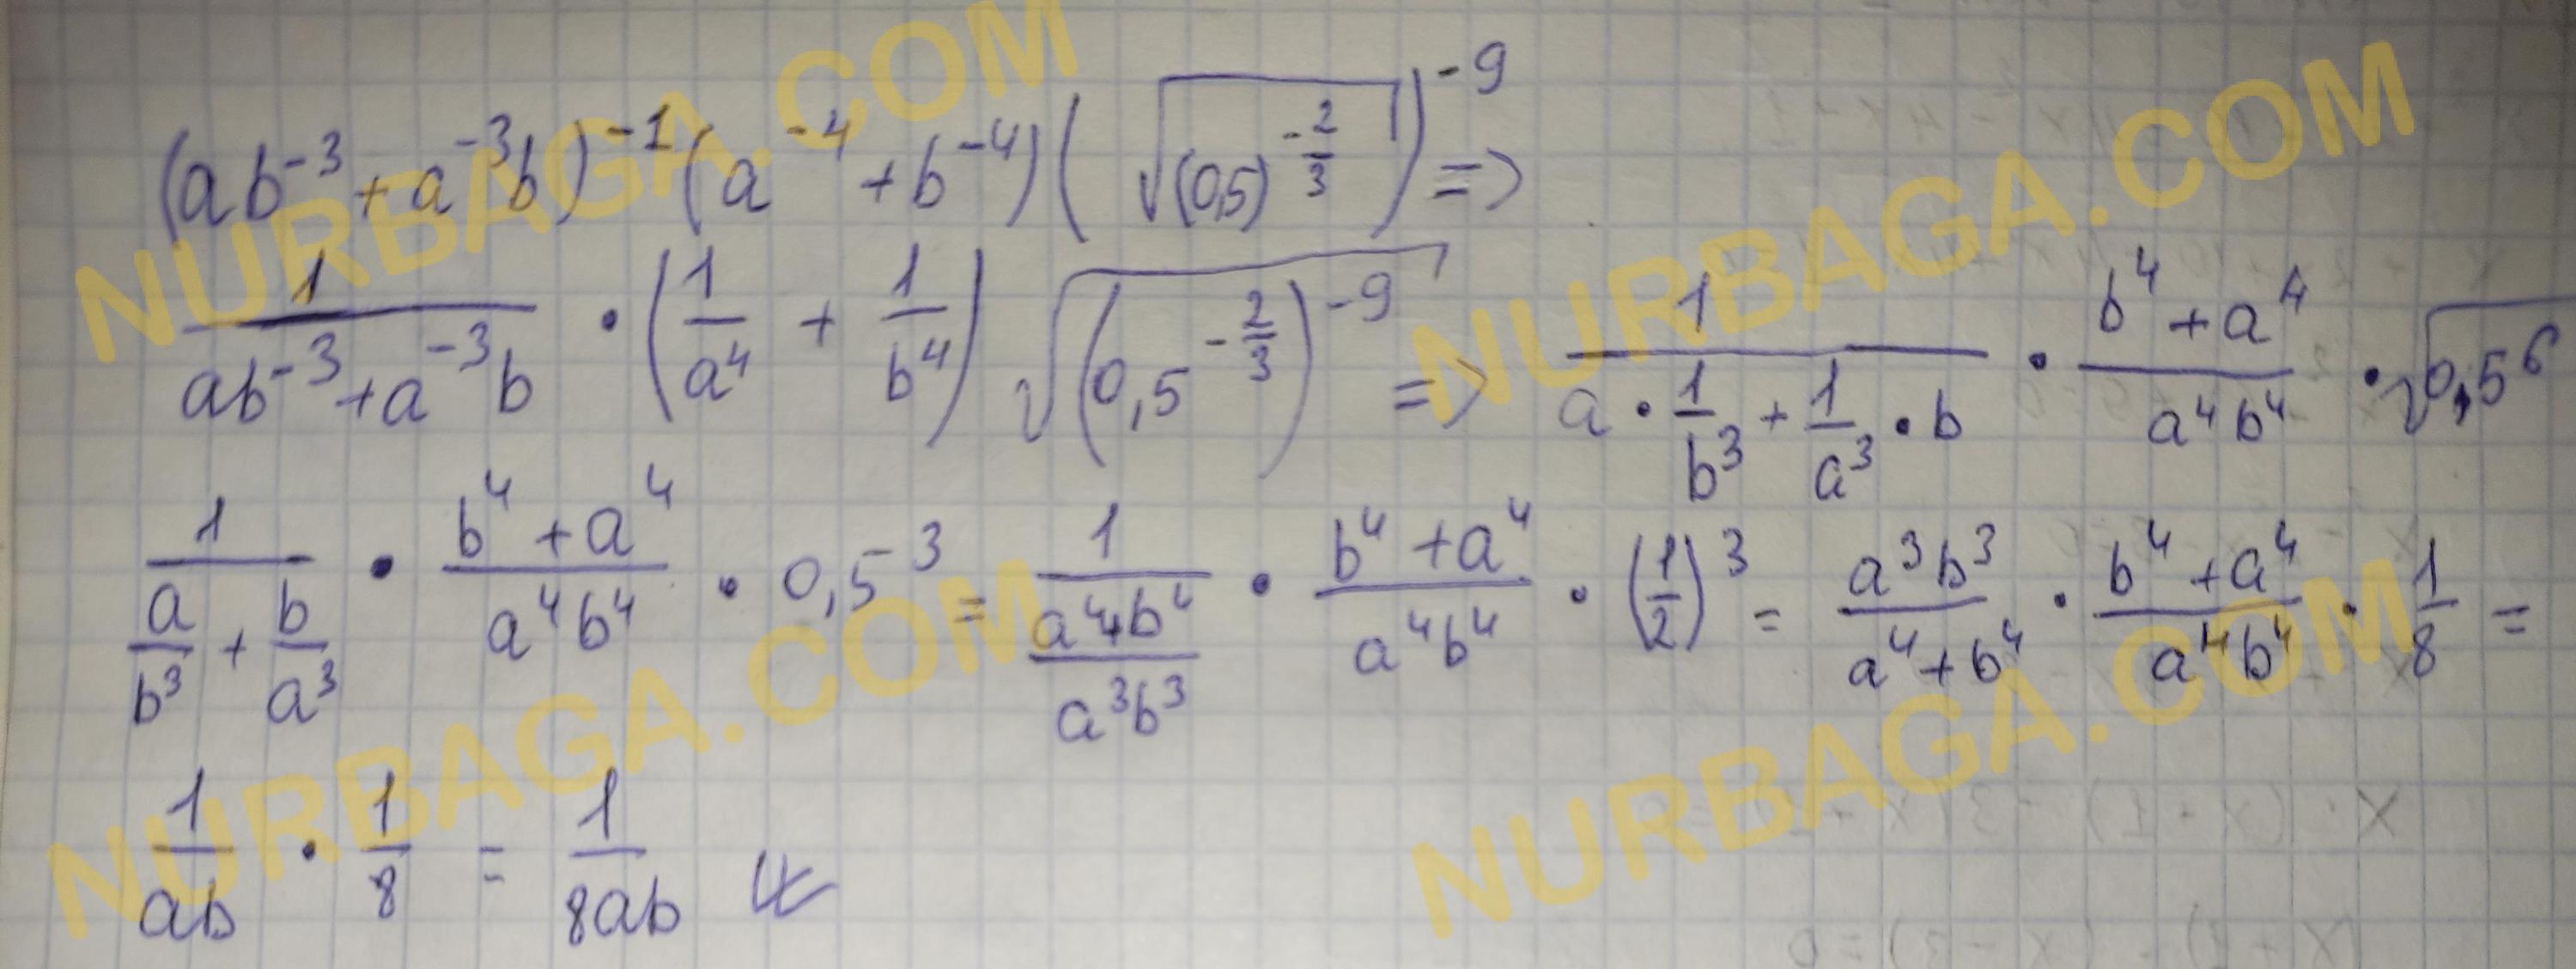 (ab⁻³ + a⁻³b)⁻¹ (a⁻⁴ + b⁻⁴) (√(0,5)^(-2/3))⁻⁹ =>
1/(ab⁻³ + a⁻³b) · (1/a⁴ + 1/b⁴) √(0,5^(-2/3))⁻⁹ => 1/(a · 1/b³ + 1/a³ · b) · (b⁴ + a⁴)/(a⁴b⁴) · √0,5⁶
1/(a/b³ + b/a³) · (b⁴ + a⁴)/(a⁴b⁴) · 0,5³ = 1/((a⁴+b⁴)/(a³b³)) · (b⁴ + a⁴)/(a⁴b⁴) · (1/2)³ = a³b³/(a⁴ + b⁴) · (b⁴ + a⁴)/(a⁴b⁴) · 1/8 =
1/ab · 1/8 = 1/8ab
NURBAGA.COM
NURBAGA.COM
NURBAGA.COM
NURBAGA.COM